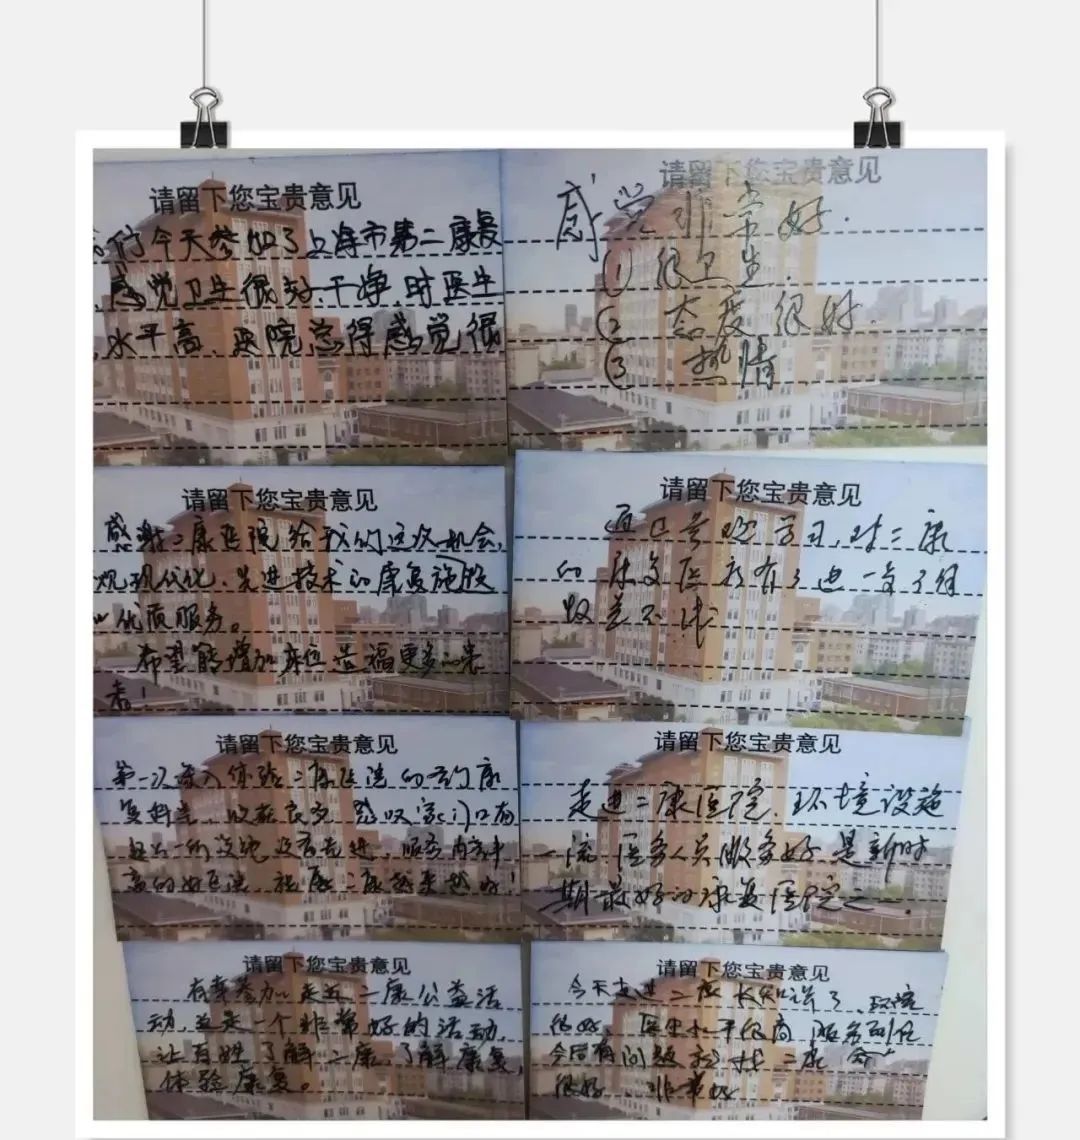 请留下您宝贵意见
今天参加了上海市第二康复
感觉卫生很好干净.时医生
水平高.医院总得感觉很
请留下您宝贵意见
感觉非常好.
① 很卫生.
② 态度很好.
③ 热情
请留下您宝贵意见
感谢二康医院给我们这次机会,
观现代化、先进技术的康复施设
优质服务。
希望能增加床位造福更多的患
者!
请留下您宝贵意见
对二康
的康复医疗有了进一步了解
收益不浅
请留下您宝贵意见
第一次深入体验二康医院的专门康
复科室,收获良多,感叹家门口有
这么一所设施设备先进,服务内容丰
富的好医院,祝愿二康越来越好!
请留下您宝贵意见
走进二康医院.环境设施
一流.医务人员服务好.是新时
期最好的康复医院之一.
请留下您宝贵意见
有幸参加走近二康公益活
动,这是一个非常好的活动,
让百姓了解二康,了解康复,
体验康复。
请留下您宝贵意见
今天走进二康长知识了、环境
很好、医生水平很高
今后有问题就找二康
很好、非常好